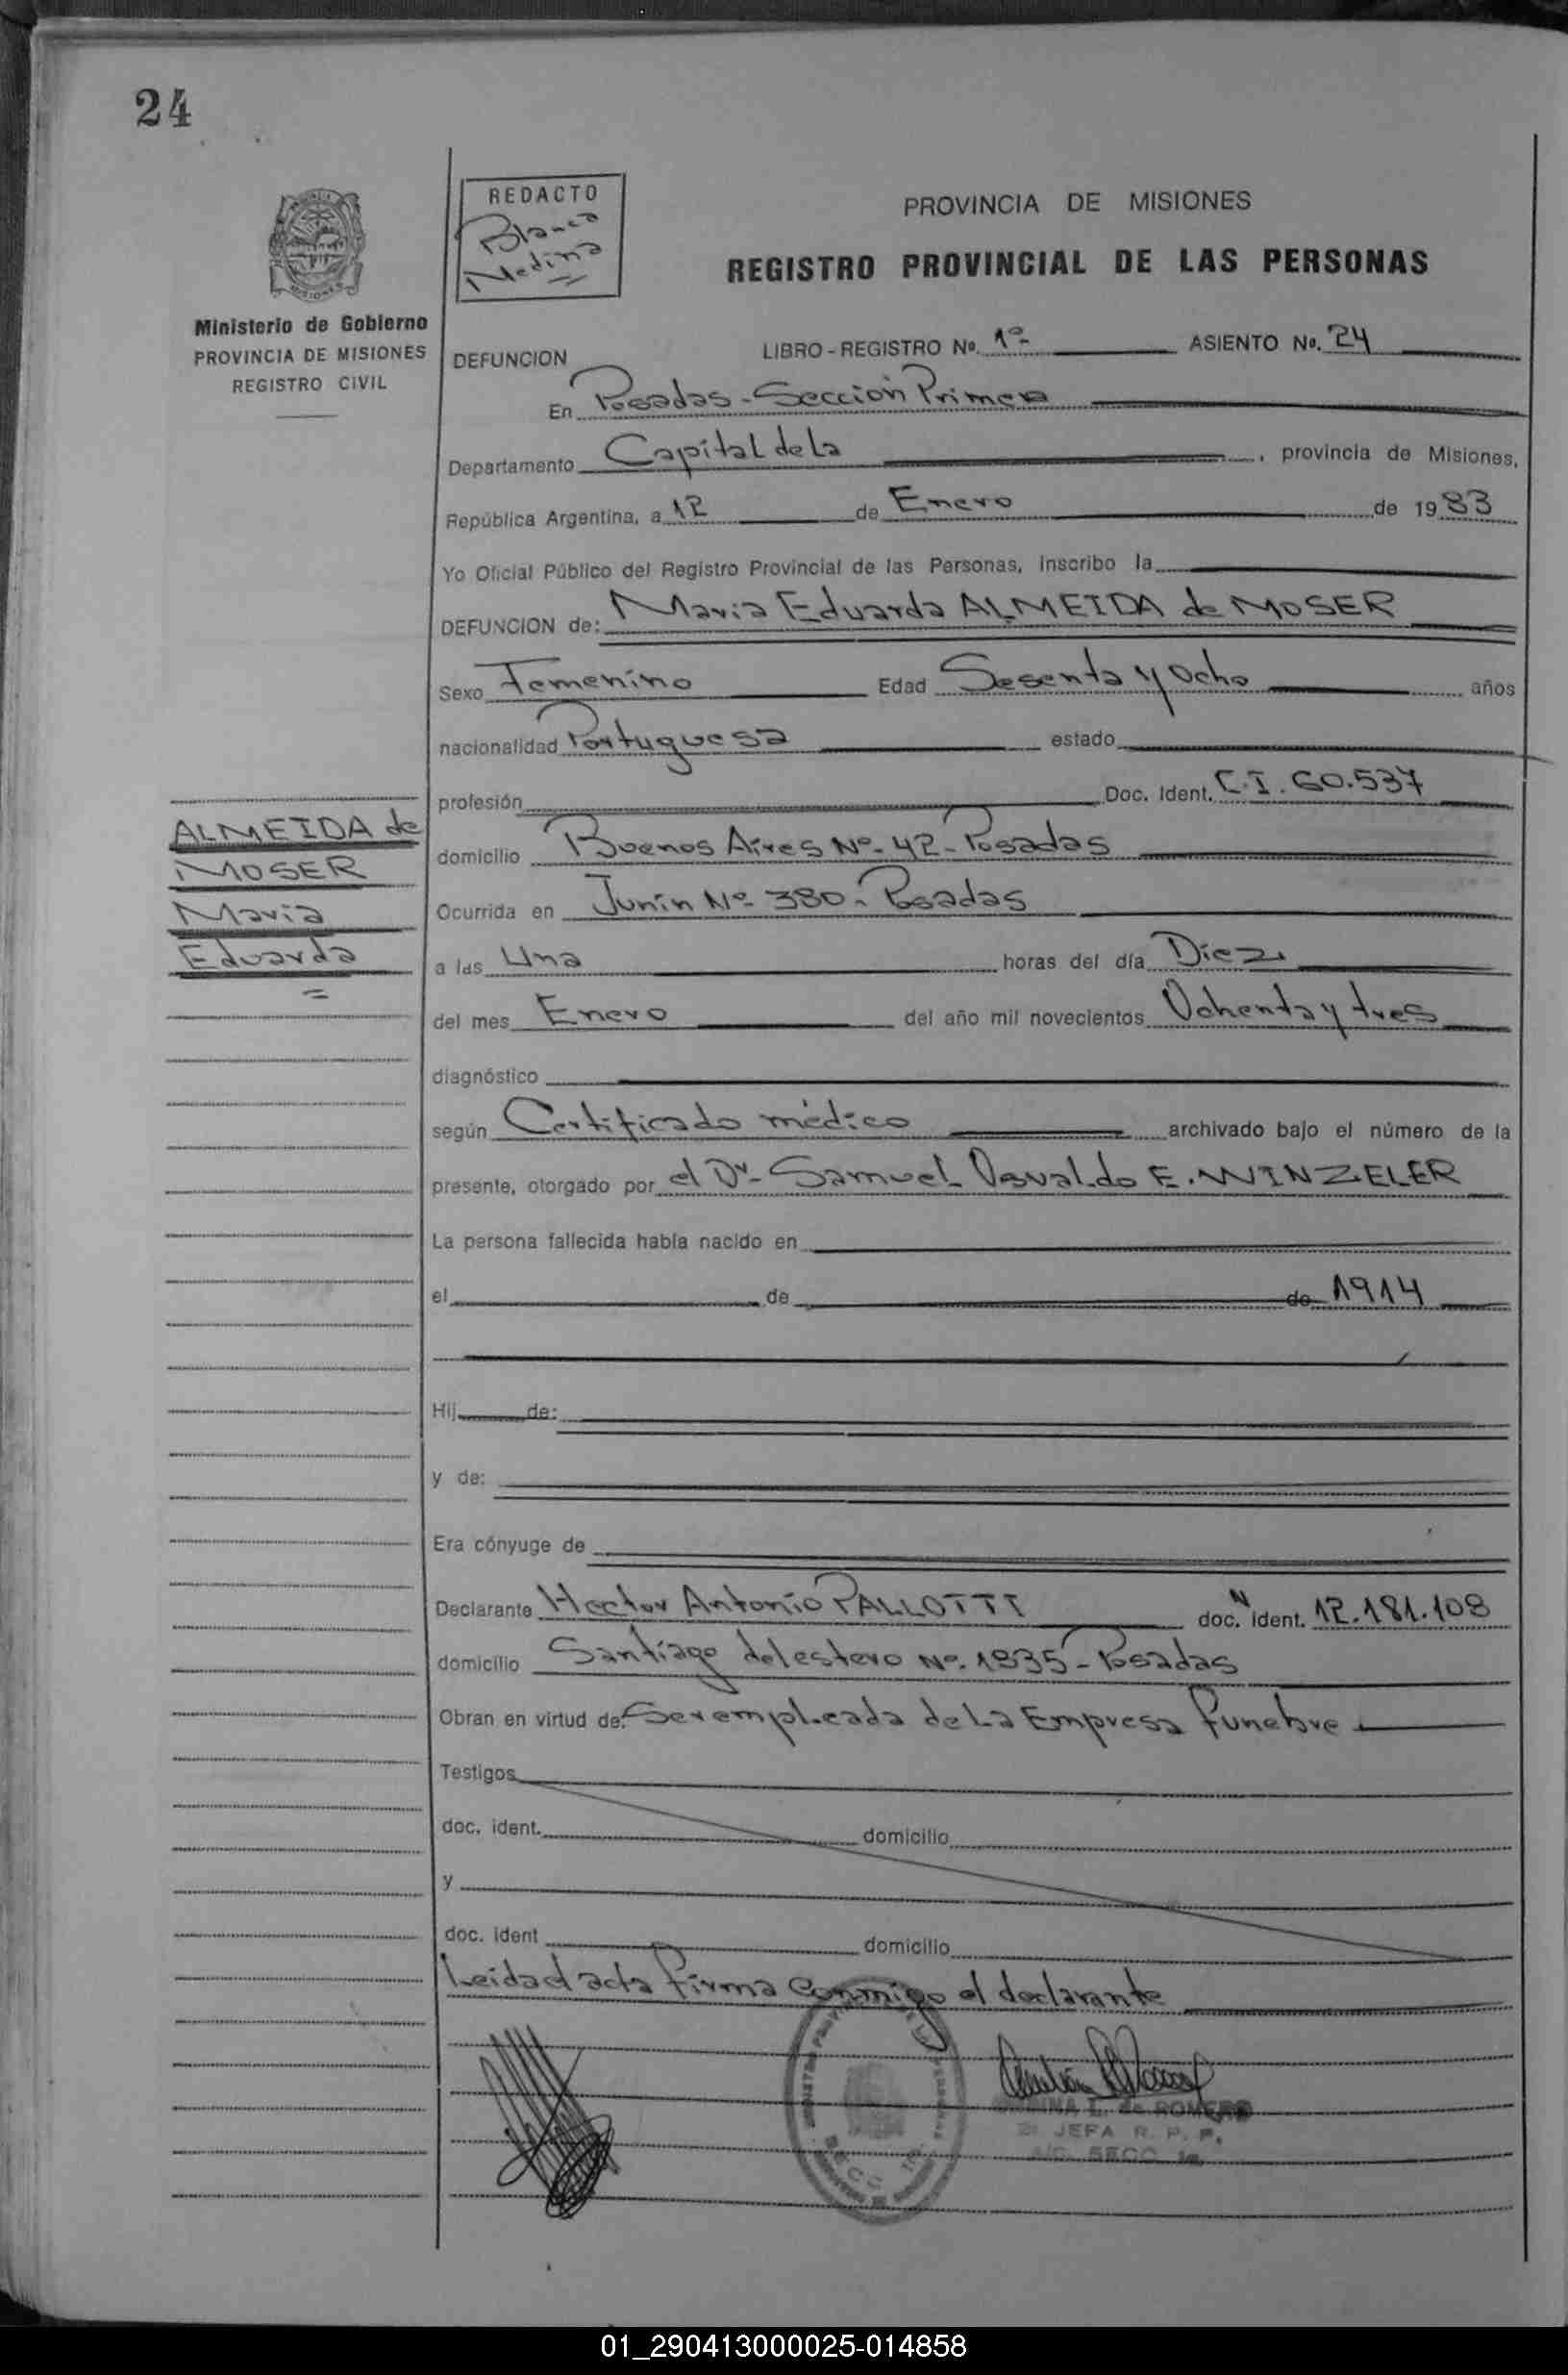 24
REDACTO
Blanca
Medina
PROVINCIA DE MISIONES
REGISTRO PROVINCIAL DE LAS PERSONAS
Ministerio de Gobierno
PROVINCIA DE MISIONES
REGISTRO CIVIL
DEFUNCION LIBRO - REGISTRO No. 1º ASIENTO No. 24
En Posadas - Sección Primera
Departamento Capital de la , provincia de Misiones,
República Argentina, a 12 de Enero de 1983
Yo Oficial Público del Registro Provincial de las Personas, inscribo la
DEFUNCION de: Maria Eduarda ALMEIDA de MOSER
Sexo Femenino Edad Sesenta y Ocho años
nacionalidad Portuguesa estado
profesión Doc. Ident. C.I. 60.537
ALMEIDA de
MOSER
Maria
Eduarda
domicilio Buenos Aires Nº 42 - Posadas
Ocurrida en Junín Nº 380 - Posadas
a las Una horas del día Diez
del mes Enero del año mil novecientos Ochenta y tres
diagnóstico
según Certificado médico archivado bajo el número de la
presente, otorgado por el Dr. Samuel Osvaldo E. WINZELER
La persona fallecida había nacido en
el de de 1914
Hij de:
y de:
Era cónyuge de
Declarante Hector Antonio PALLOTTI doc. N ident. 12.181.108
domicilio Santiago del estero Nº 1835 - Posadas
Obran en virtud de: Ser empleada de La Empresa fúnebre
Testigos
doc. ident. domicilio
y
doc. ident domicilio
Leida el acta firma conmigo el declarante
L. de ROMERO
JEFA R. P. P.
A/C. SECC. 1a.
01_290413000025-014858